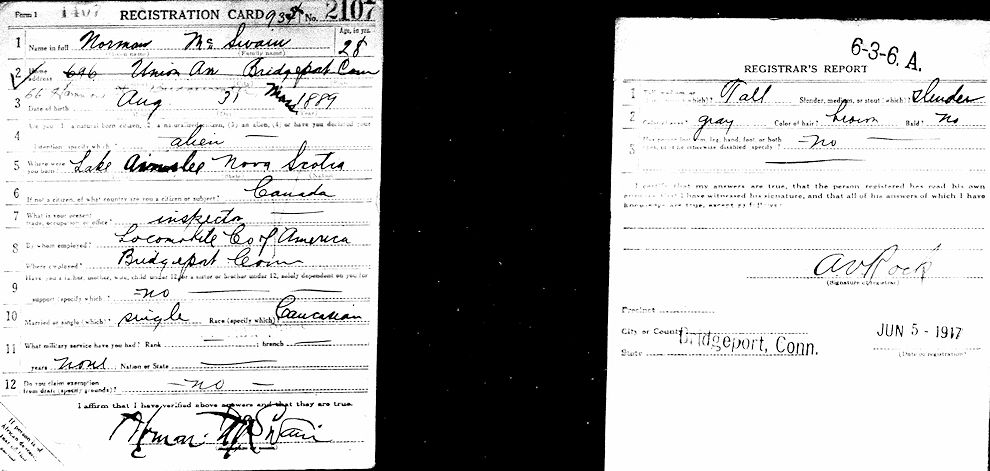 Form 1 1407 REGISTRATION CARD 93 No. 2107
Age, in yrs.
1 Name in full Norman Mc Swain 28
(Family name)
2 Home address 646 Union Av Bridgeport Conn
3 Date of birth Aug 31 1889
4 Are you (1) a natural born citizen, (2) a naturalized citizen, (3) an alien, (4) or have you declared your
intention (specify which)? alien
5 Where were you born? Lake Ainslee Nova Scotia
6 If not a citizen, of what country are you a citizen or subject? Canada
7 What is your present trade, occupation, or office? inspector
8 By whom employed? Locomobile Co of America
Where employed? Bridgeport Conn
9 Have you a father, mother, wife, child under 12, or a sister or brother under 12, solely dependent on you for
support (specify which)? no
10 Married or single (which)? single Race (specify which)? Caucasian
11 What military service have you had? Rank ; branch
years none ; Nation or State
12 Do you claim exemption from draft (specify grounds)? no
I affirm that I have verified above answers and that they are true.
Norman McSwain
If person is of
African descent,
6-3-6. A.
REGISTRAR'S REPORT
1 Tall Slender, medium, or stout (which)? slender
2 gray Color of hair? brown Bald? No
3 Has person lost arm, leg, hand, foot, or both
or is he otherwise disabled (specify)? No
I certify that my answers are true, that the person registered has read his own
answers, that I have witnessed his signature, and that all of his answers of which I have
knowledge are true, except as follows:
A V Rock
(Signature of registrar)
Precinct
City or County Bridgeport, Conn.
State
JUN 5 - 1917
(Date of registration)